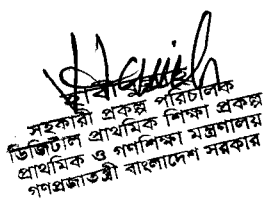 সহকারী প্রকল্প পরিচালক
ডিজিটাল প্রাথমিক শিক্ষা প্রকল্প
প্রাথমিক ও গণশিক্ষা মন্ত্রণালয়
গণপ্রজাতন্ত্রী বাংলাদেশ সরকার